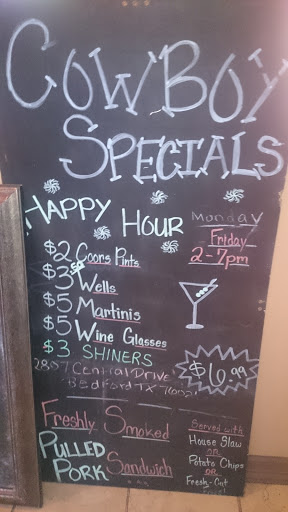 COWBOY
SPECIALS
HAPPY HOUR
Monday
Friday
2-7pm
$2 Coors Pints
$3.50 Wells
$5 Martinis
$5 Wine Glasses
$3 SHINERS
2807 Central Drive
Bedford TX 76021
$6.99
Freshly Smoked
PULLED
PORK Sandwich
Served with
House Slaw
OR
Potato Chips
OR
Fresh-Cut